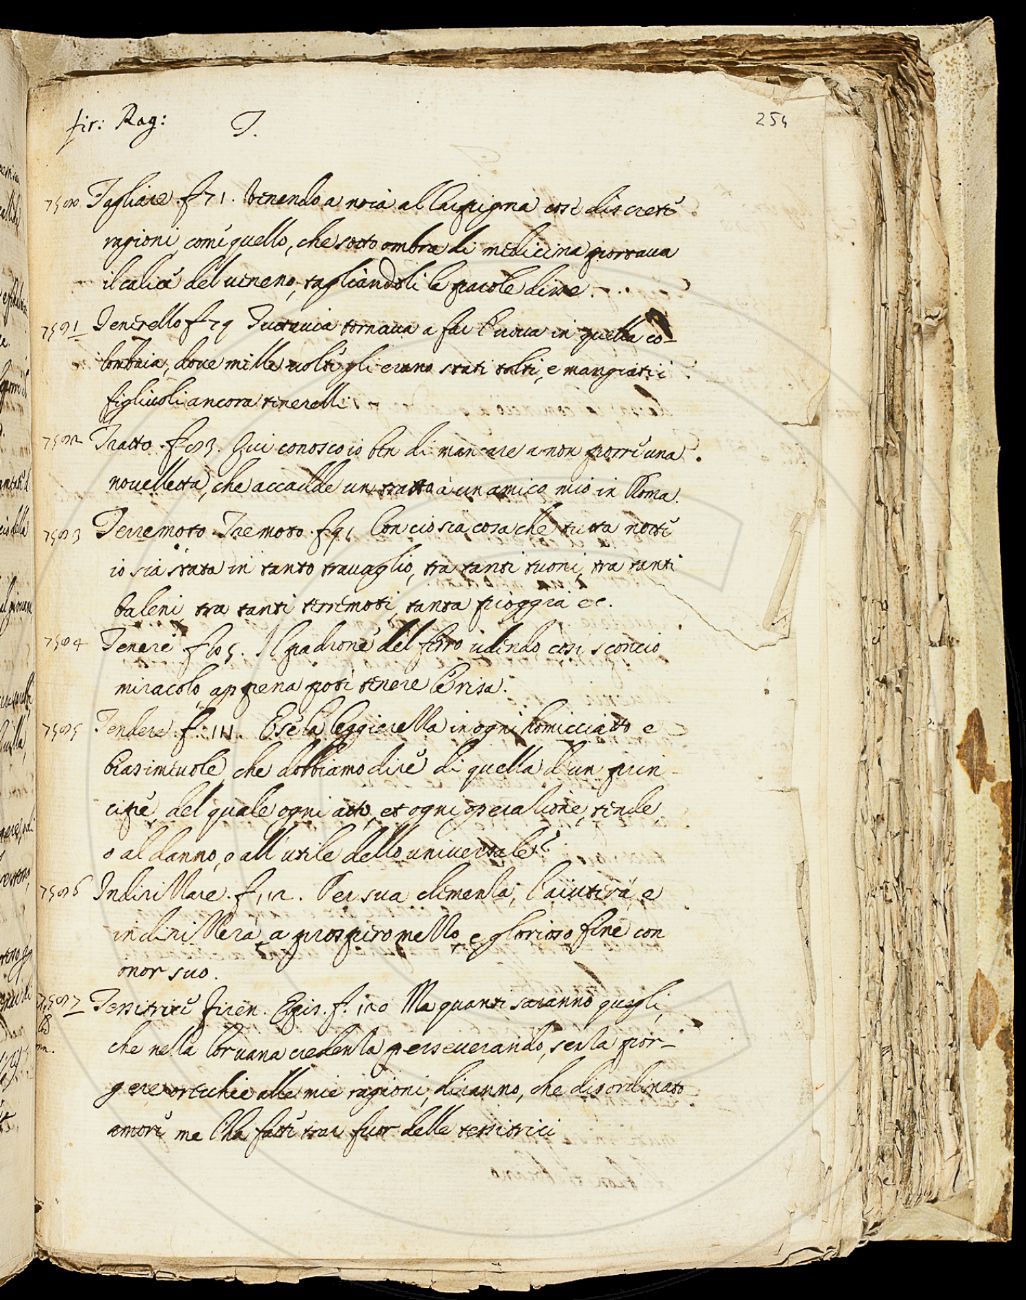 fir: Rag: T. 254
Tagliare. f. 71. Venendo a noia all'Acquigna così discrete
ragioni come quello, che sotto ombra di medicina portava
il calice del veneno, tagliandoli le parole disse.
7591 Tenerello f. 79 Tuttavia tornava a far l'uova in quella co-
lombaia, dove mille volte gli erano stati tolti, e mangiati i
figliuoli ancora tenerelli
Tratto. f. 93. Qui conosco io ben di mancare a non porre una
novelletta, che accadde un tratto a un amico mio in Roma.
7593 Terremoto. Tremoto. f. 95 Conciosia cosa che tutta notte
io sia stata in tanto travaglio, tra tanti tuoni, tra tanti
baleni tra tanti terremoti, tanta pioggia ec.
7594 Tenere f. 105. Il padrone del ferro udendo così sconcio
miracolo appena potè tenere le risa.
7595 Tendere. f. 111. E se la leggierezza in ogni homicciatto e
biasimevole che dobbiamo dire di quella d'un prin-
cipe, del quale ogni atto, et ogni operazione, tende
o al danno, o all'utile dello universale?
7596 Indirizzare. f. 112. Per sua clemenza, l'aiuterà e
indirizzera a prospero mezzo e glorioso fine con
onor suo.
7597 Tessitrice firen. Epis. f. 120 Ma quanti saranno quegli,
che nella torvana credenza perseverando, senza por-
gere orecchie alle mie ragioni, diranno, che disordinato
amore me l'ha fatte trar fuor delle tessitrici